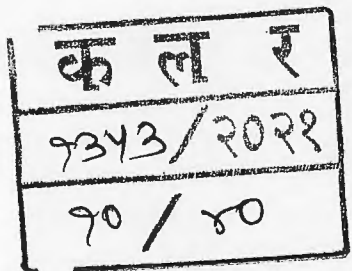 क ल र
१३५३/२०२१
१०/४०